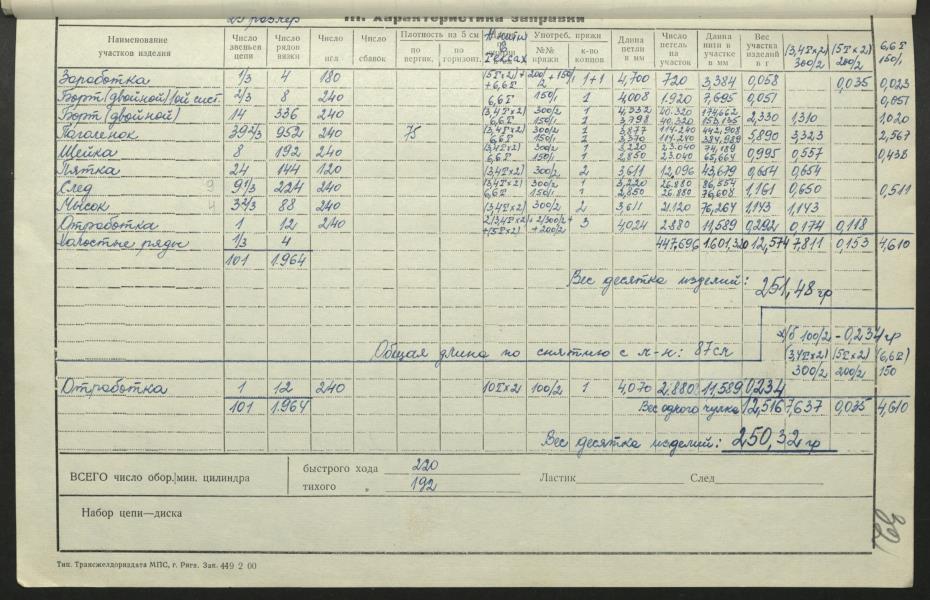 23 размер
III. Характеристика заправки
Наименование участков изделия | Число звеньев цепи | Число рядов вязки | Число игл | Число сбавок | Плотность на 5 см по вертик. | по горизонт. | Употреб. пряжи №№ | к-во концов | Длина петли в мм | Число петель на участок | Длина нити в участке в мм | Вес участка изделий в г | (3,4Тх2) 300/2 | (5Тх2) 200/2 | 6,6Т 150/1
Заработка 1/3 4 180 (5Тх2)+ +6,6Т 200/2 + 150/1 1+1 4,700 720 3,384 0,058 0,035 0,023
Борт (двойной) 2/3 8 240 6,6Т 150/1 1 4,008 1.920 7,695 0,051 0,051
Борт (двойной) 14 336 240 (3,4Тх2) 300/2 1 4,332 40.320 174,662 2,330 1,310 1,020
6,6Т 150/1 1 3,798 40.320 153,135
Паголенок 39 2/3 952 240 75 (3,4Тх2) 300/2 1 3,877 114.240 442,908 5,890 3,323 2,567
6,6Т 150/1 3,370 114.240 384,989
Шейка 8 192 240 (3,4Тх2) 300/2 1 3,220 23.040 74,189 0,995 0,557 0,438
6,6Т 150/1 1 2,850 23.040 65,664
Пятка 24 144 120 (3,4Тх2) 300/2 2 3,611 12,096 43,679 0,654 0,654
След 9 1/3 224 240 (3,4Тх2) 300/2 1 3,220 26.880 86,554 1,161 0,650 0,511
6,6Т 150/1 1 2,850 26.880 76,608
Мысок 3 2/3 88 240 (3,4Тх2) 300/2 2 3,611 21.120 76,264 1,143 1,143
Отработка 1 12 240 2(3,4Тх2)+ +(5Тх2) 2/300/2+ +200/2 3 4,024 2.880 11,589 0,292 0,174 0,118
Холостые ряды 1/3 4 447,696 1.601,320 12,574 7,811 0,153 4,610
101 1.964
Вес десятка изделий: 251,48 гр
х/б 100/2 - 0,234 гр
Общая длина по снятию с м-н: 87см (3,4Тх2) (5Тх2) (6,6Т)
300/2 200/2 150
Отработка 1 12 240 10Тх2 100/2 1 4,070 2.880 11,589 0,234
101 1.964 Вес одного чулка 12,516 7,637 0,035 4,610
Вес десятка изделий: 250,32 гр
ВСЕГО число обор. мин. цилиндра быстрого хода 220 Ластик След
тихого „ 192
Набор цепи—диска
Тип. Трансжелдориздата МПС, г. Рига. Зак. 449 2 00